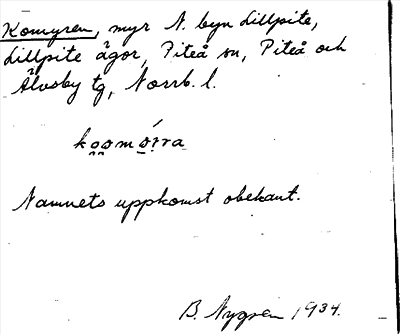 Komyren, myr N. byn Lillpite,
Lillpite ägor, Piteå sn, Piteå och
Älvsby tg, Norrb. l.
Namnets uppkomst obekant.
B. Nygren 1934.